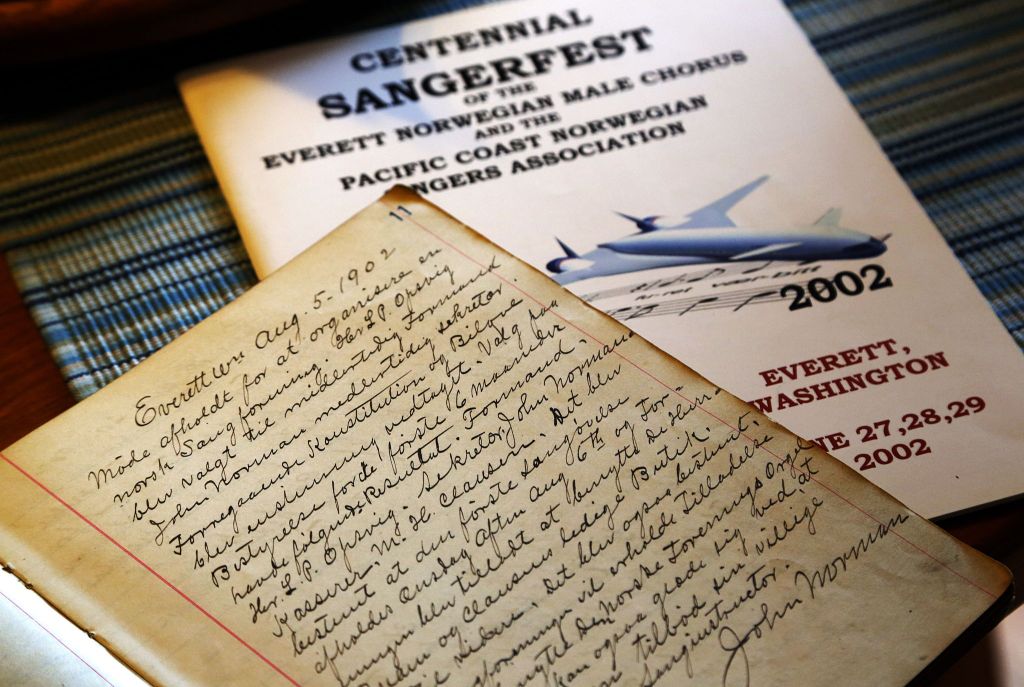 CENTENNIAL
SANGERFEST
OF THE
EVERETT NORWEGIAN MALE CHORUS
AND THE
PACIFIC COAST NORWEGIAN
NGERS ASSOCIATION
2002
EVERETT,
WASHINGTON
NE 27,28,29
2002
11
Everett Wn Aug. 5-1902
Möde afholdt for at organisere en
norsk Sang forening. Hr L.P. Opsvig
blev valgt til midlertidig Formand
John Norman midlertidig sekretær
Forregaaende Konstitution og Bilove
blev enstemmig vedtaget. Valg paa
Bestyrelse for de förste 6 maaneder
havde fölgende Resultat. Formand,
Hr. L. P. Opsvig. Sekretær, John Norman
Kasserer, M. H. Clausen. Det blev
bestemt at den förste sangövelse
afholdes Onsdag Aften Aug 6th og For
blev tillbudt at benytte
og Clausens ledige Butik.
Det blev ogsaa bestemt,
foreningen vil erholde Tilladelse
den norske Forenings Orgel
ogsaa glæde sig ved at
tilböd sin villige
Sanginstructor.
John Norman